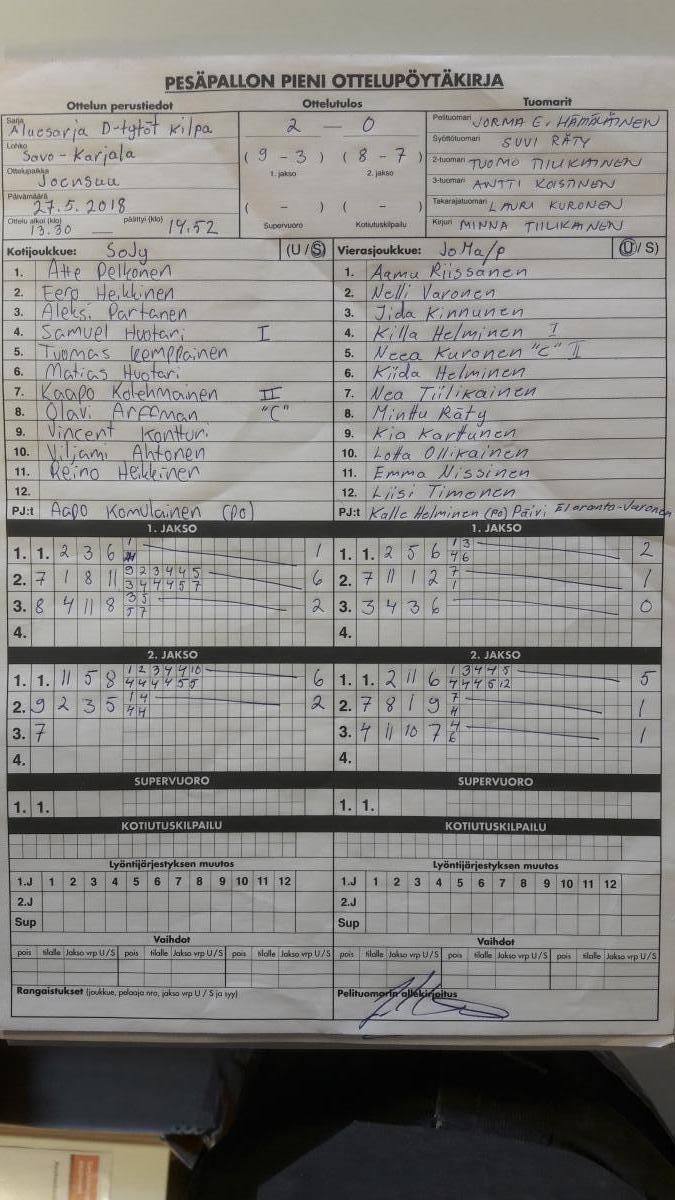 PESÄPALLON PIENI OTTELUPÖYTÄKIRJA
Ottelun perustiedot Ottelutulos Tuomarit
Sarja Aluesarja D-tytöt kilpa
Lohko Savo-Karjala
Ottelupaikka Joensuu
Päivämäärä 27.5.2018
Ottelu alkoi (klo) 13.30 — päättyi (klo) 14.52
2 — 0
( 9 - 3 ) ( 8 - 7 )
1. jakso 2. jakso
( - ) ( - )
Supervuoro Kotiutuskilpailu
Pelituomari JORMA E. HÄMÄLÄINEN
Syöttötuomari SUVI RÄTY
2-tuomari TUOMO TIILIKAINEN
3-tuomari ANTTI KOISTINEN
Takarajatuomari LAURI KURONEN
Kirjuri MINNA TIILIKAINEN
Kotijoukkue: SoJy (U/S)
1. Atte Pelkonen
2. Eero Heikkinen
3. Aleksi Partanen
4. Samuel Huotari I
5. Tuomas Kemppainen
6. Matias Huotari
7. Kaapo Kolehmainen II
8. Olavi Arffman "C"
9. Vincent Kontturi
10. Viljami Ahtonen
11. Reino Heikkinen
12.
PJ:t Aapo Komulainen (po)
Vierasjoukkue: JoMa/p (U/S)
1. Aamu Riissanen
2. Nelli Varonen
3. Iida Kinnunen
4. Killa Helminen I
5. Neea Kuronen "C" II
6. Kiida Helminen
7. Nea Tiilikainen
8. Minttu Räty
9. Kia Karttunen
10. Lotta Ollikainen
11. Emma Nissinen
12. Liisi Timonen
PJ:t Kalle Helminen (po) Päivi Eloranta-Varonen
1. JAKSO
1. 1. 2 3 6 1
2. 7 1 8 11 9 2 3 4 4 5 6
3 4 4 4 5 7
3. 8 4 11 8 3 5 2
5 7
4.
1. JAKSO
1. 1. 2 5 6 1 3 2
4 6
2. 7 11 1 2 7 1
1
3. 3 4 3 6 0
4.
2. JAKSO
1. 1. 11 5 8 1 2 3 4 4 10 6
4 4 4 4 5 5
2. 9 2 3 5 1 4 2
4 4
3. 7
4.
2. JAKSO
1. 1. 2 11 6 1 3 4 4 5 5
4 4 4 5 12
2. 7 8 1 9 7 1
3. 4 11 10 7 4 1
6
4.
SUPERVUORO SUPERVUORO
1. 1. 1. 1.
KOTIUTUSKILPAILU KOTIUTUSKILPAILU
Lyöntijärjestyksen muutos Lyöntijärjestyksen muutos
1.J 1 2 3 4 5 6 7 8 9 10 11 12 1.J 1 2 3 4 5 6 7 8 9 10 11 12
2.J 2.J
Sup Sup
Vaihdot Vaihdot
pois tilalle Jakso vrp U/S pois tilalle Jakso vrp U/S pois tilalle Jakso vrp U/S pois tilalle Jakso vrp U/S pois tilalle Jakso vrp U/S pois tilalle Jakso vrp U/S
Rangaistukset (joukkue, pelaaja nro, jakso vrp U / S ja syy) Pelituomarin allekirjoitus